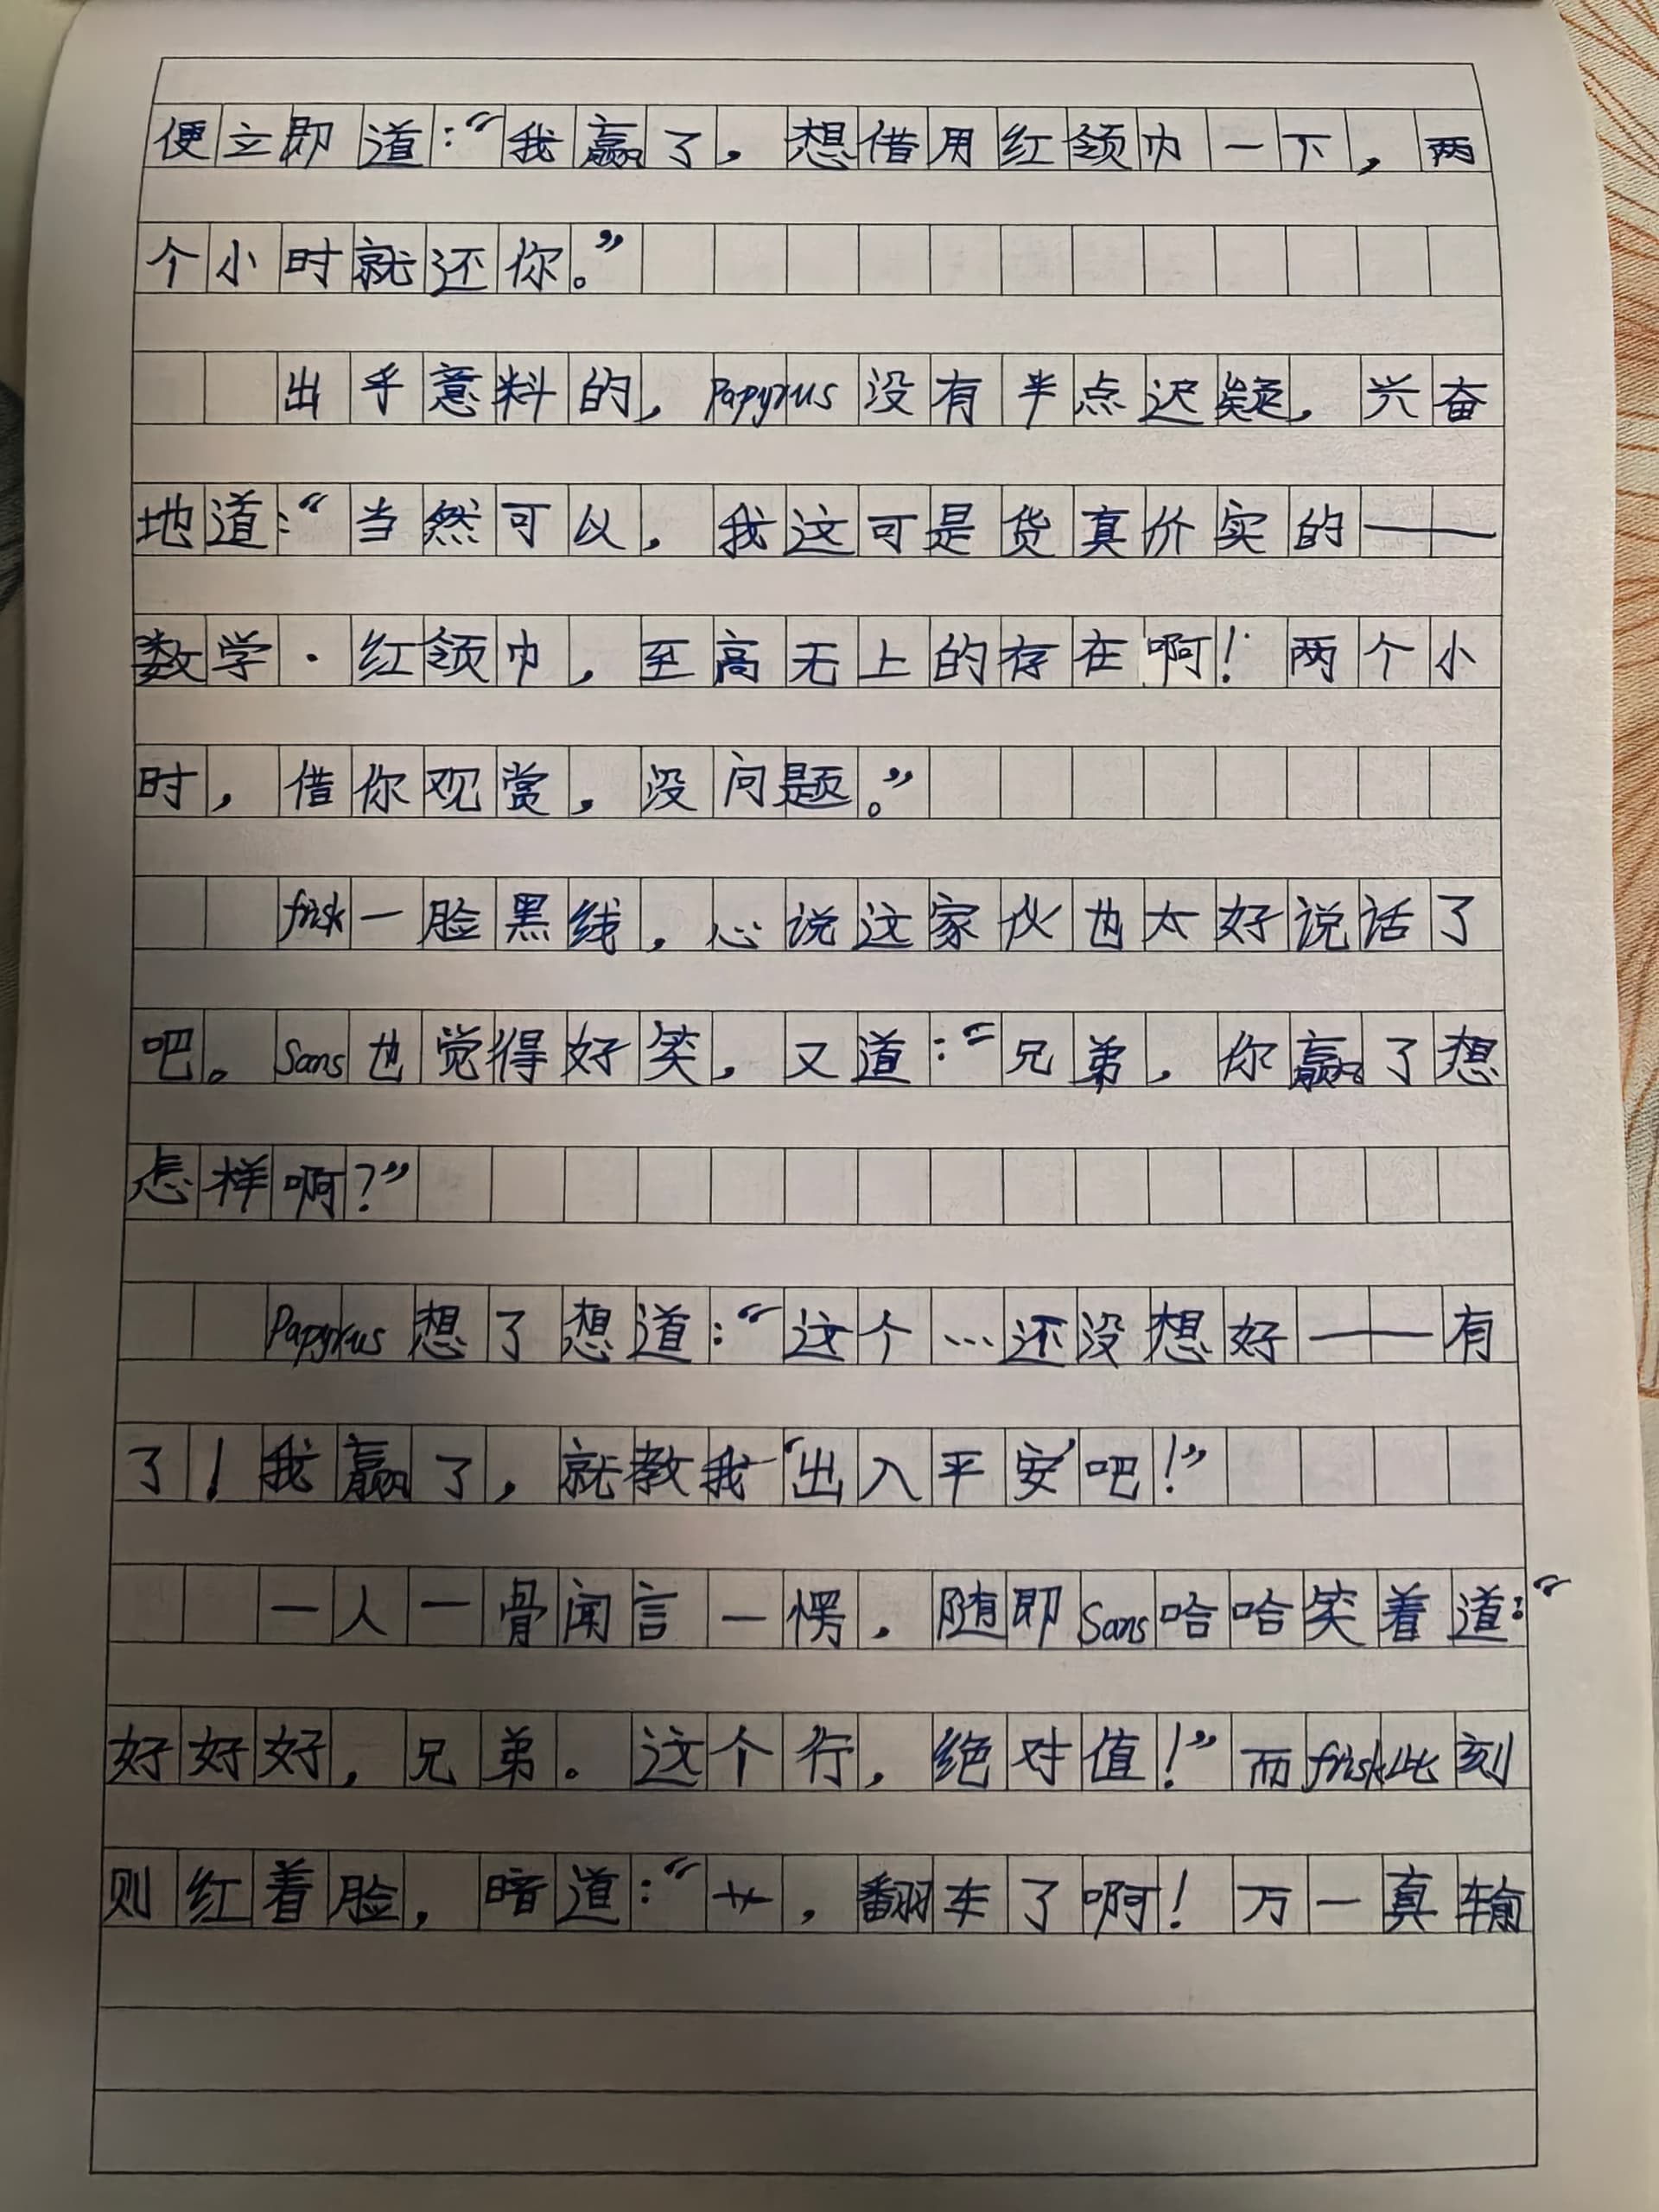 便立即道：“我赢了，想借用红领巾一下，两
个小时就还你。”
出乎意料的，Papyrus没有半点迟疑，兴奋
地道：“当然可以，我这可是货真价实的——
数学·红领巾，至高无上的存在啊！两个小
时，借你观赏，没问题。”
frisk一脸黑线，心说这家伙也太好说话了
吧。Sans也觉得好笑，又道：“兄弟，你赢了想
怎样啊？”
Papyrus想了想道：“这个…还没想好——有
了！我赢了，就教我‘出入平安’吧！”
一人一骨闻言一愣，随即Sans哈哈笑着道：“
好好好，兄弟。这个行，绝对值！”而frisk此刻
则红着脸，暗道：“艹，翻车了啊！万一真输